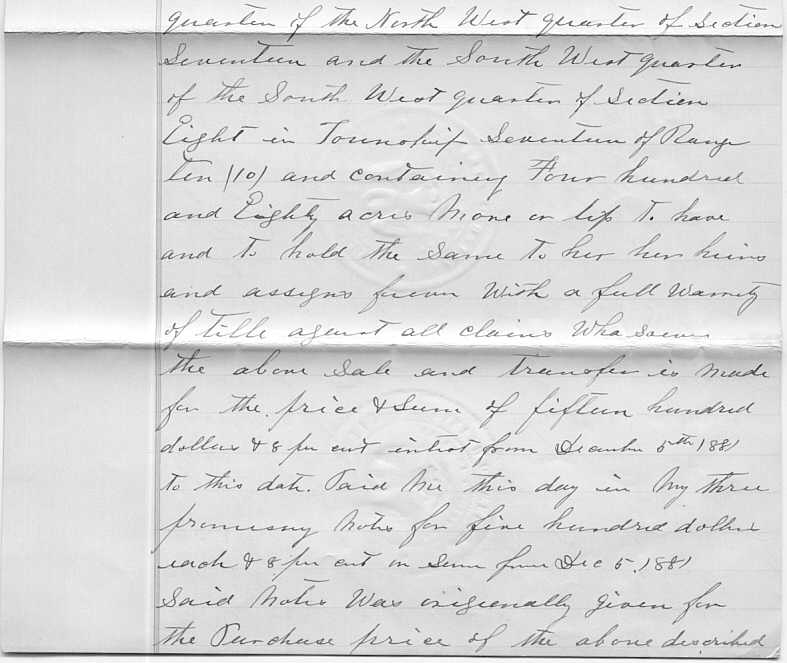 quarter of the North West quarter of Section
Seventeen and the South West quarter
of the South West quarter of Section
Eight in Township Seventeen of Range
Ten (10) and containing Four hundred
and Eighty acres More or less To have
and to hold the same To her her heirs
and assigns forever With a full Warrnty
of Title against all claims Whasoever
the above Sale and transfer is Made
for the price & Sum of fifteen hundred
dollars & 8 per cent intrest from December 5th 1881
to this date. Paid Me this day in My three
promissory Notes for five hundred dollars
each & 8 per cent on Same from Dec 5, 1881
Said Notes Was origionally given for
the Purchase price of the above described